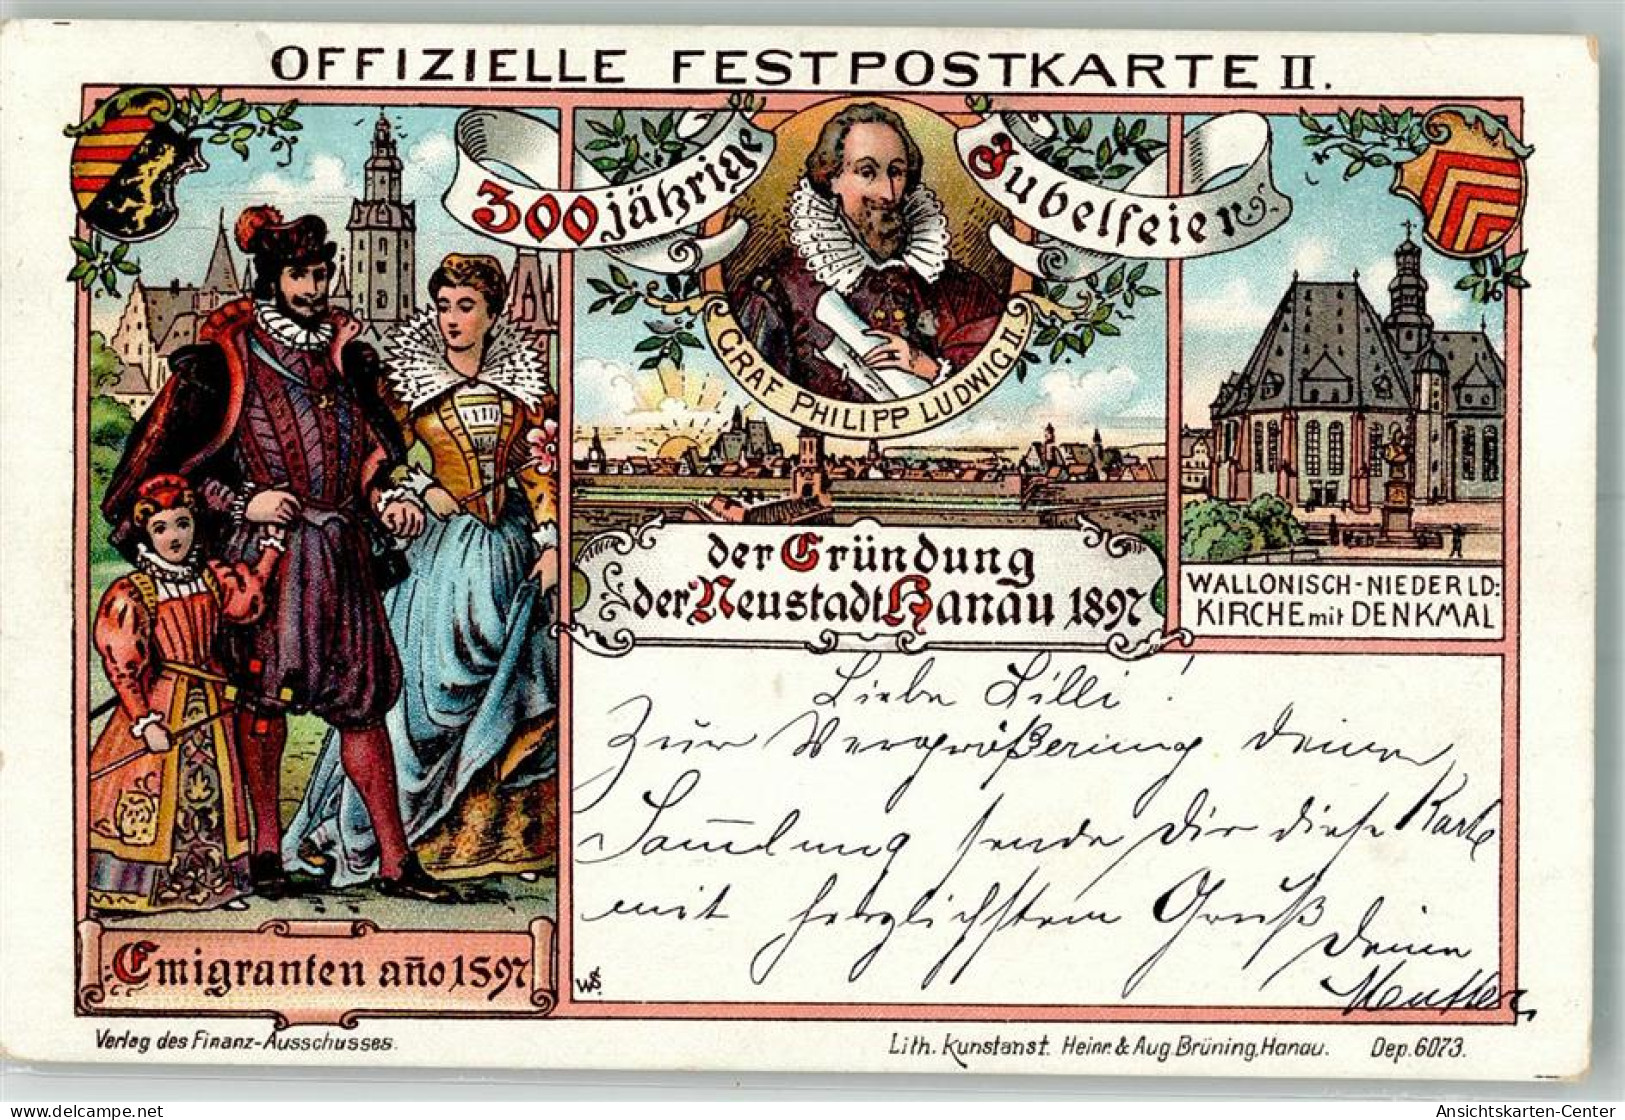 OFFIZIELLE FESTPOSTKARTE II.
300 jährige Jubelfeier
GRAF PHILIPP LUDWIG II.
der Gründung
der Neustadt Hanau 1897
WALLONISCH-NIEDERLD:
KIRCHE mit DENKMAL
Liebe Lilli!
Zur Vergrößerung deiner
Sammlung sende dir diese Karte
mit herzlichstem Gruß
Deine
Mutter
Emigranten año 1597
WS.
Verlag des Finanz-Ausschusses.
Lith. Kunstanst. Heinr. & Aug. Brüning, Hanau. Dep. 6073.
Ansichtskarten-Center